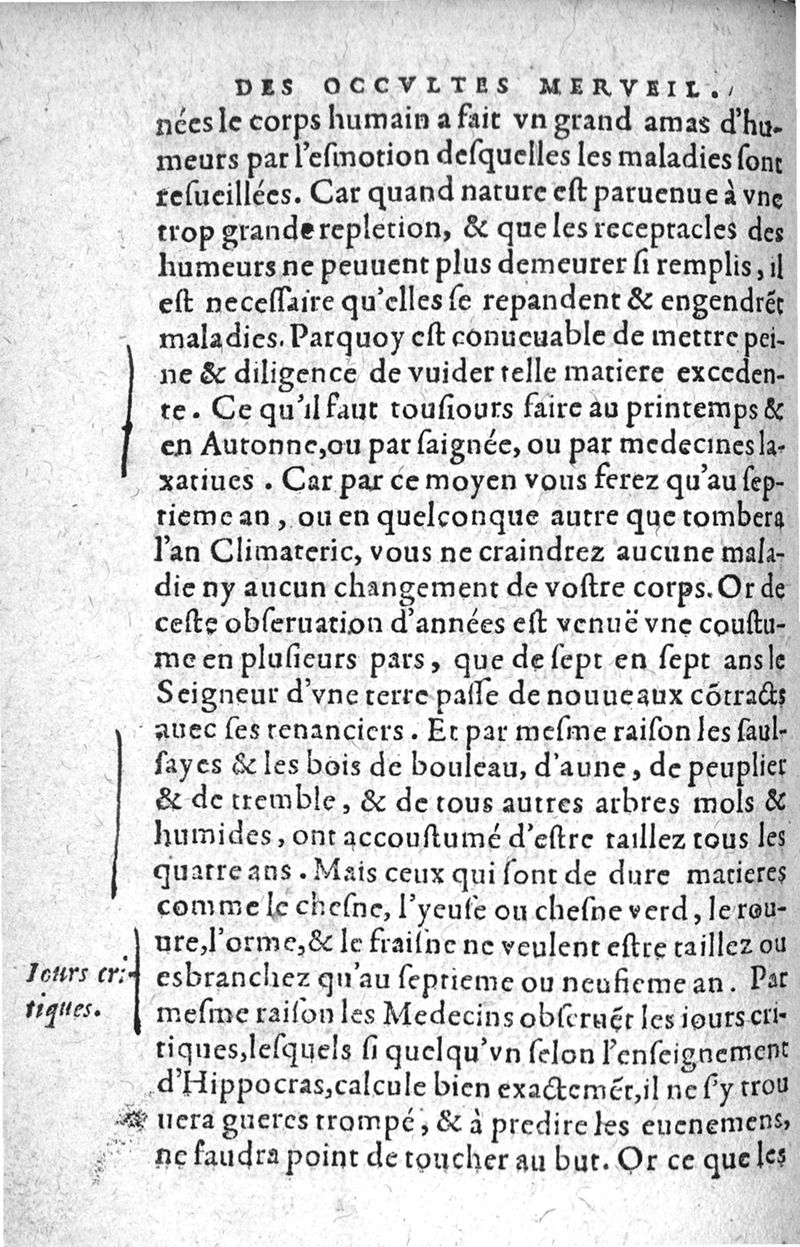 DES OCCVLTES MERVEIL.
nées le corps humain a fait vn grand amas d'hu-
meurs par l'eſmotion deſquelles les maladies ſont
reſueillées. Car quand nature eſt paruenue à vne
trop grande repletion, & que les receptacles des
humeurs ne peuuent plus demeurer ſi remplis, il
eſt neceſſaire qu'elles ſe repandent & engendrẽt
maladies. Parquoy eſt conueuable de mettre pei-
ne & diligence de vuider telle matiere exceden-
te. Ce qu'il faut touſiours faire au printemps &
en Autonne, ou par ſaignée, ou par medecines la-
xatiues. Car par ce moyen vous ferez qu'au ſep-
tieme an, ou en quelconque autre que tombera
l'an Climateric, vous ne craindrez aucune mala-
die ny aucun changement de voſtre corps. Or de
ceſte obſeruation d'années eſt venuë vne couſtu-
me en pluſieurs pars, que de ſept en ſept ans le
Seigneur d'vne terre paſſe de nouueaux cõtracts
auec ſes tenanciers. Et par meſme raiſon les ſaul-
ſayes & les bois de bouleau, d'aune, de peuplier
& de tremble, & de tous autres arbres mols &
humides, ont accouſtumé d'eſtre taillez tous les
quatre ans. Mais ceux qui ſont de dure matieres
comme le cheſne, l'yeuſe ou cheſne verd, le rou-
ure, l'orme, & le fraiſne ne veulent eſtre taillez ou
Iours cri-
tiques.
esbranchez qu'au ſeptieme ou neufieme an. Par
meſme raiſou les Medecins obſeruẽt les iours cri-
tiques, leſquels ſi quelqu'vn ſelon l'enſeignement
d'Hippocras, calcule bien exactemẽt, il ne ſ'y trou
uera gueres trompé, & à predire les euenemens,
ne faudra point de toucher au but. Or ce que les